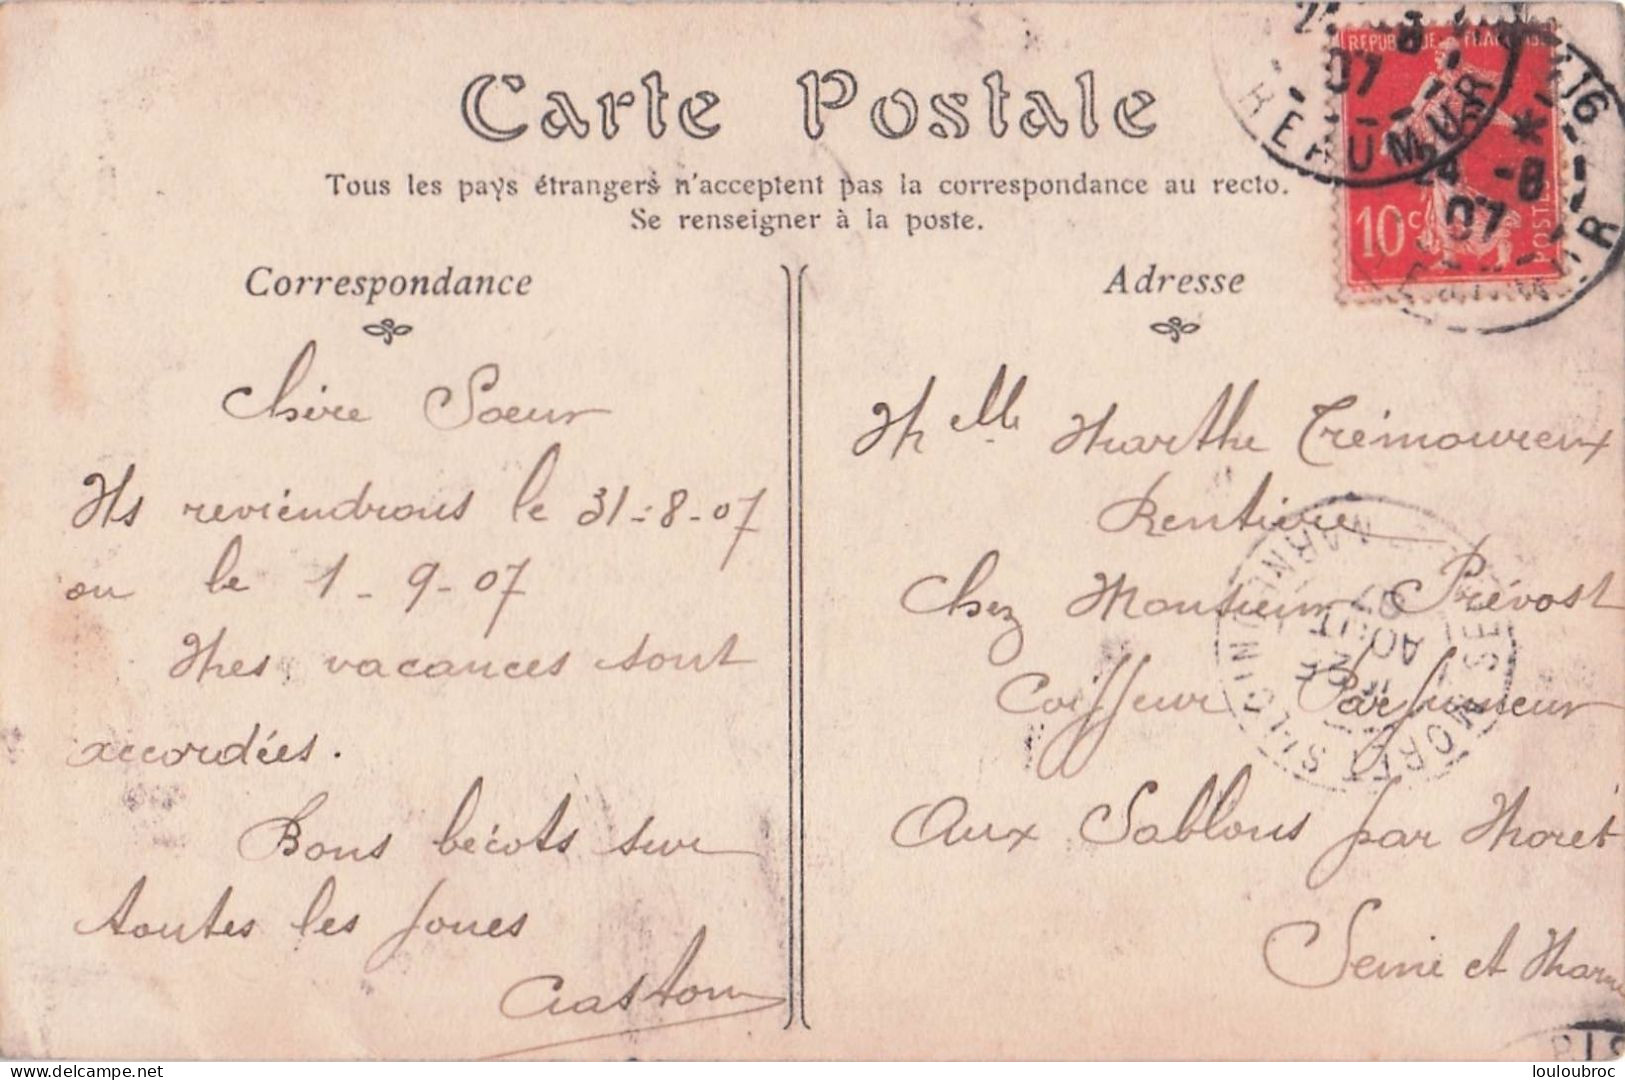 Carte Postale
Tous les pays étrangers n'acceptent pas la correspondance au recto.
Se renseigner à la poste.
Correspondance
Chère Soeur
Ils reviendrons le 31-8-07
ou le 1-9-07
Mes vacances sont
accordées.
Bons bécots sur
toutes les joues
Gaston
Adresse
Melle Marthe Trémoureux
Rentière
Chez Monsieur Prévost
Coiffeur Parfumeur
Aux Sablons par Moret
Seine et Marne
REPUBLIQUE FRANÇAISE
10c
POSTES
24 -8
07
REAUMUR
MORET-S-LOING
AOUT
07
louloubroc